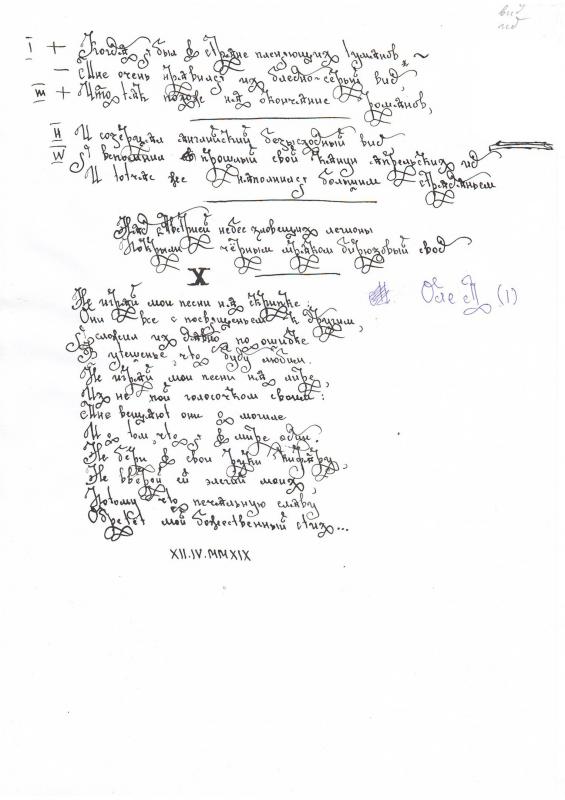 вид
лёд
I + Когда я был в стране пленяющих туманов, ~
— Мне очень нравился их бледно-серый вид,
III + Что так похож на окончание романов,
II И созерцал английский безысходный вид
IV Я вспоминал прошлый свой канун апрельских ид
И тотчас все наполнился большим страданьем
Над Австрией небес зловещих легионы
Покрыли чёрным мраком бирюзовый свод
X
Не играй мои песни на скрипке:
Они все с посвященьем к другим,
Я сложил их давно по ошибке
В утешенье, что буду любим.
Не играй мои песни на лире,
Их не пой голосочком своим:
Мне вещают они о могиле
И о том, что я в мире один.
Не бери в свои руки кифару,
Не вверяй ей элегий моих,
Потому что печальную славу
Обретёт мой божественный стих...
Оле П (1)
XII.IV.MMXIX